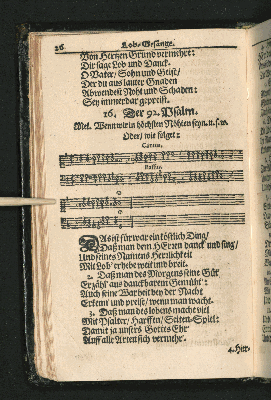 26. Lob-Gesänge.
Von Hertzen Grund verneuret:
Dir sage Lob und Danck.
O Vater / Sohn und Geist /
Der du aus lauter Gnaden
Abwendest Noht und Schaden:
Sey immerdar gepreist.
16. Der 92. Psalm.
Mel. Wenn wir in höchsten Nöhten seyn. u. s. w.
Oder / wie folget:
Cantus.
Bassus.
DAs ist fürwar ein köstlich Ding /
Daß man dem HErren danck und sing /
Und seines Namens Herrlichkeit
Mit Lob' erhebe weit und breit.
2. Daß man des Morgens seine Güt
Erzähl' aus danckbarem Gemüht':
Auch seine Warheit bey der Nacht
Erkenn' und preise / wenn man wacht.
3. Daß man des lobens mache viel
Mit Psalter / Harffen / Seiten-Spiel:
Damit ja unsers Gottes Ehr
Auff alle Arten sich vermehr'.
4. Herr